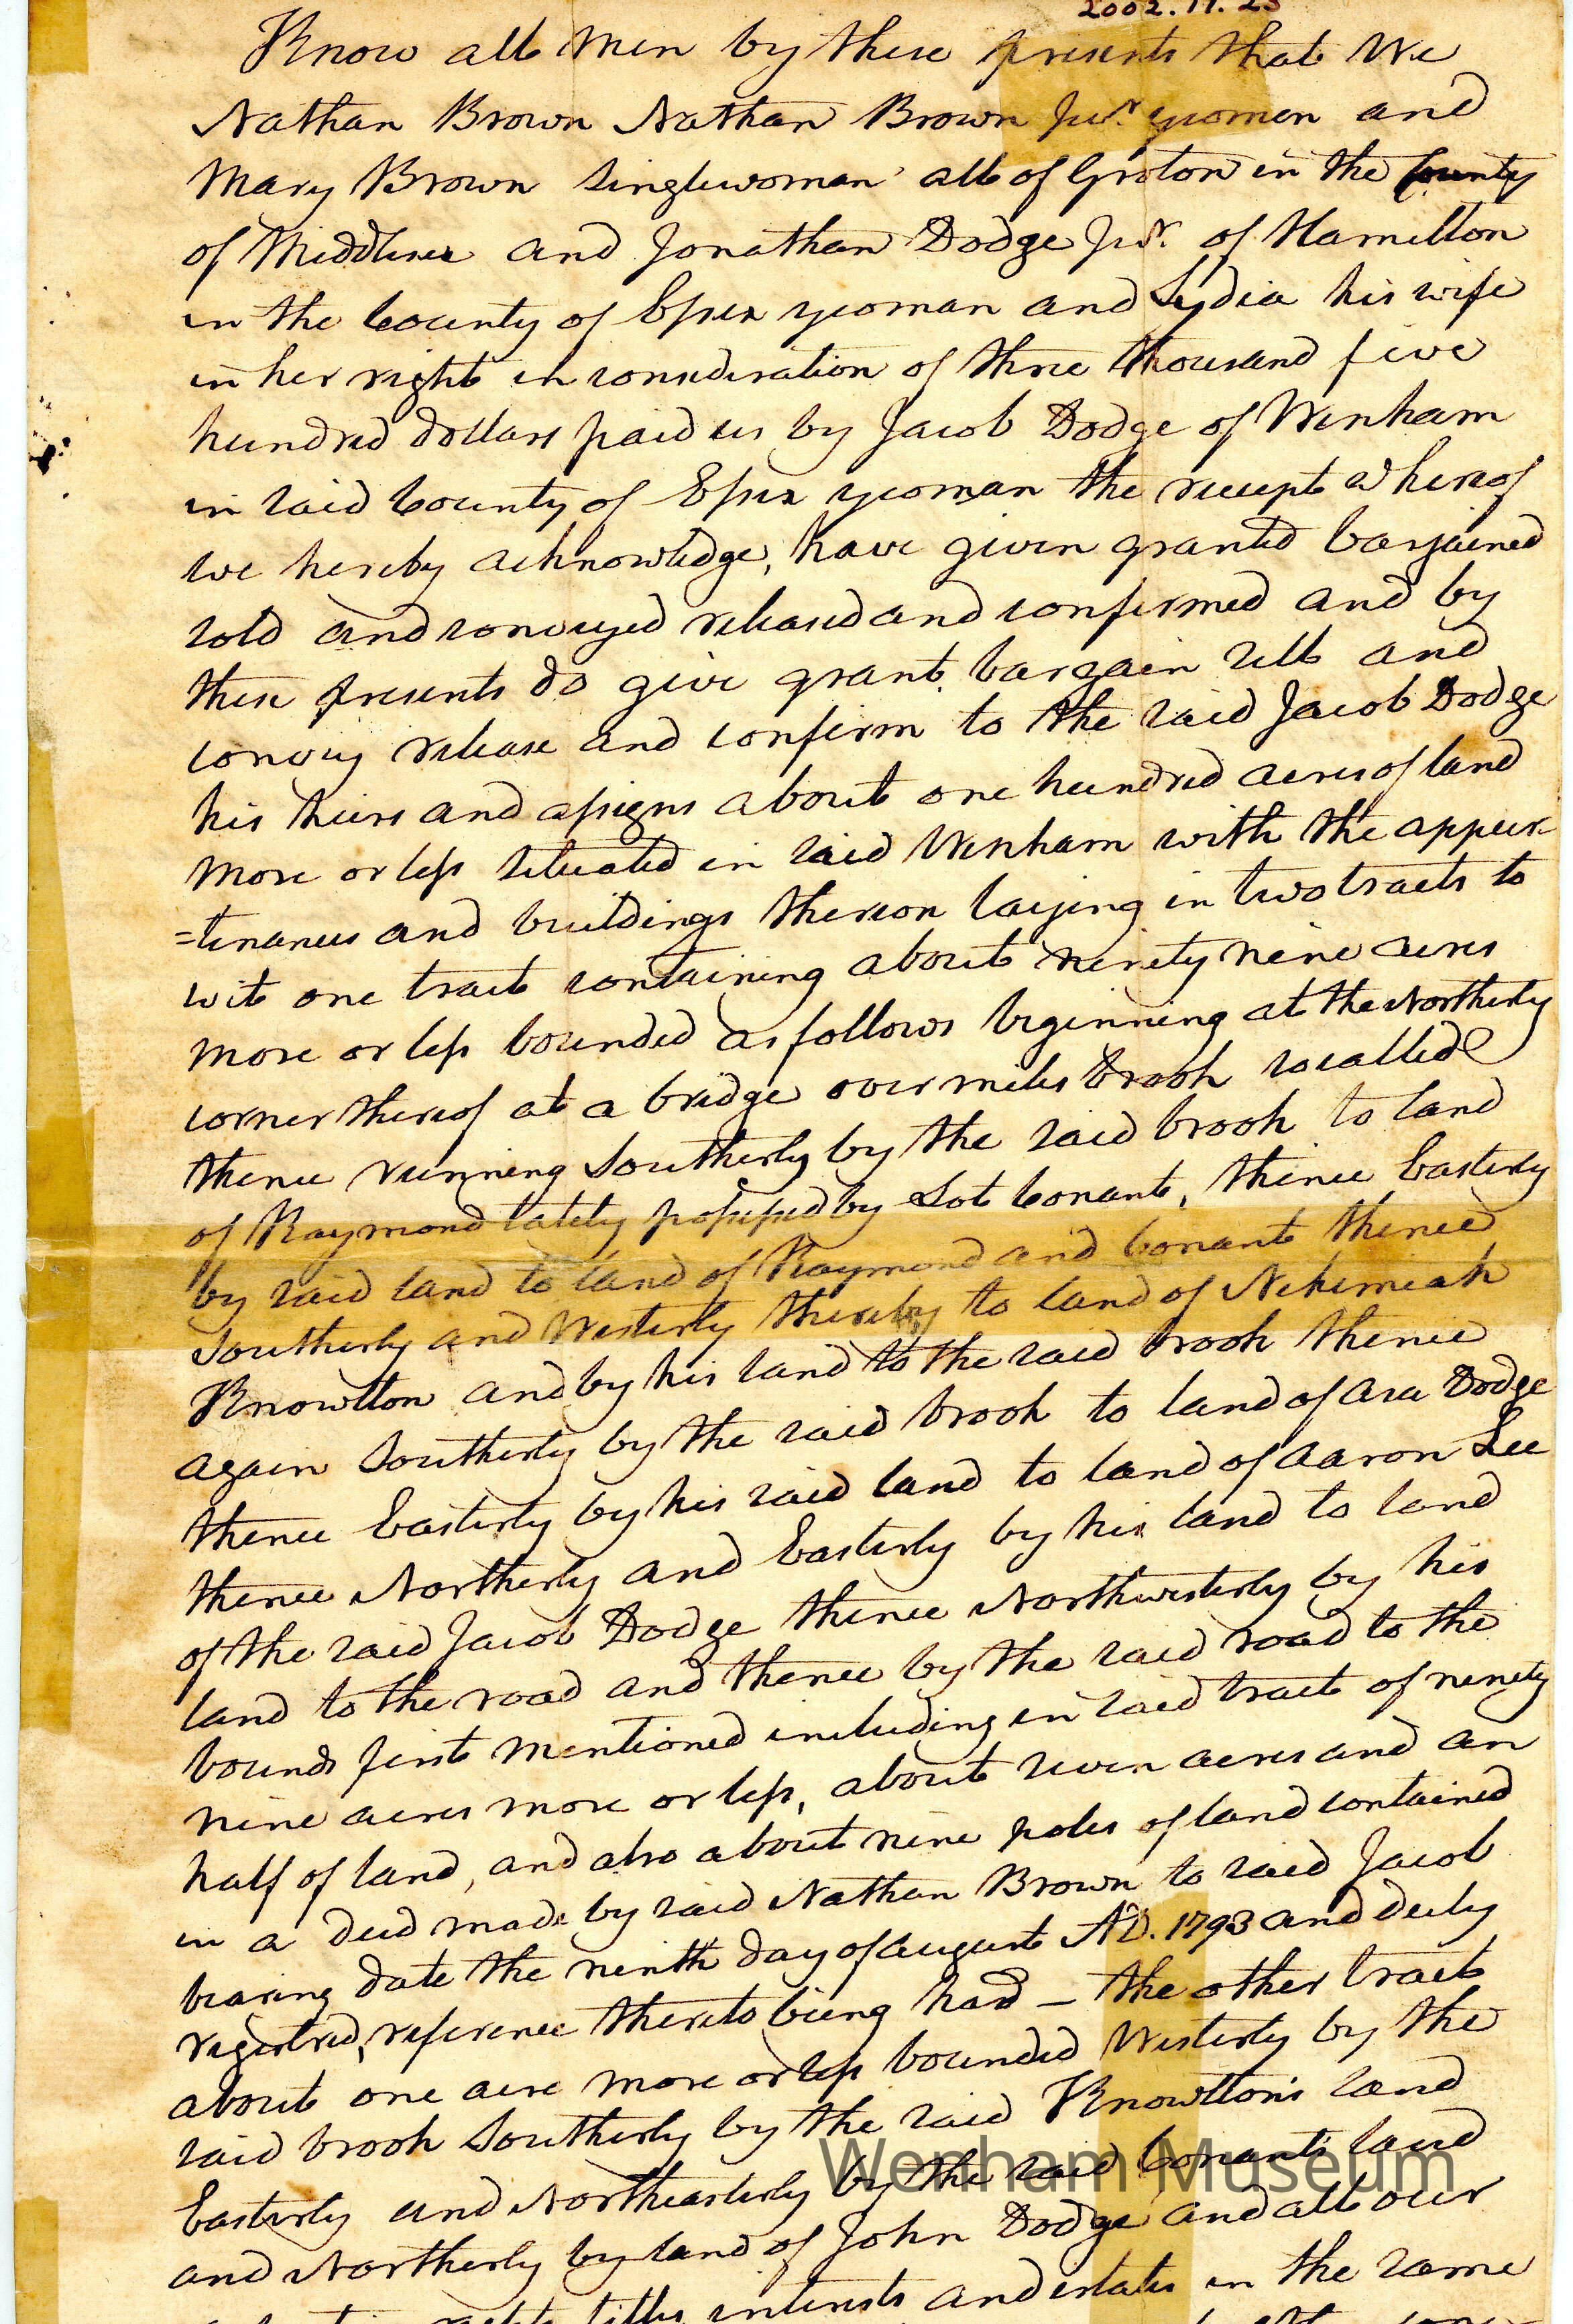 2002.11.23
Know all Men by these presents that We
Nathan Brown Nathan Brown Junr. yeomen and
Mary Brown singlewoman all of Groton in the County
of Middlesex and Jonathan Dodge Junr. of Hamilton
in the County of Essex yeoman and Lydia his wife
in her right in consideration of three thousand five
hundred dollars paid us by Jacob Dodge of Wenham
in said County of Essex yeoman the receipt whereof
we hereby acknowledge, have given granted bargained
sold and conveyed released and confirmed and by
these presents do give grant bargain sell and
convey release and confirm to the said Jacob Dodge
his heirs and assigns about one hundred acres of land
more or less situated in said Wenham with the appur-
=tenances and buildings thereon laying in two tracts to
wit one tract containing about ninety nine acres
more or less bounded as follows beginning at the Northerly
corner thereof at a bridge over miles brook so called
thence running Southerly by the said brook to land
of Raymond lately possessed by Lot Conant, thence Easterly
by said land to land of Raymond and Conant thence
Southerly and Westerly thereby to land of Nehemiah
Knowlton and by his land to the said brook thence
again Southerly by the said brook to land of Asa Dodge
thence Easterly by his said land to land of Aaron Lee
thence Northerly and Easterly by his land to land
of the said Jacob Dodge thence Northwesterly by his
land to the road and thence by the said road to the
bounds first mentioned including in said tract of ninety
nine acres more or less, about seven acres and an
half of land, and also about nine poles of land contained
in a deed made by said Nathan Brown to said Jacob
bearing date the ninth day of August AD. 1793 and duly
registred, reference thereto being had – the other tract
about one acre more or less bounded Westerly by the
said brook Southerly by the said Knowlton's land
Easterly and Northeasterly by the said Conant's land
and Northerly by land of John Dodge and all our
titles interests and estates in the same
Wenham Museum